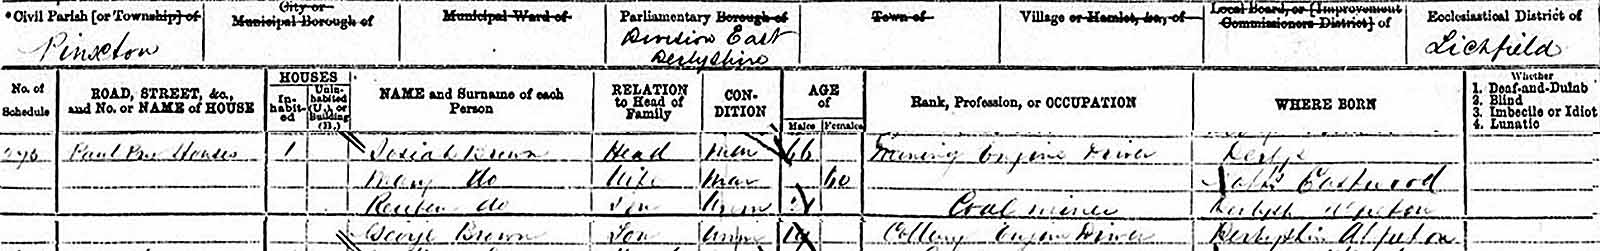 *Civil Parish [or Township] of
City or Municipal Borough of
Municipal Ward of
Parliamentary Borough of
Town of
Village or Hamlet, &c., of
Local Board, or [Improvement Commissioners District] of
Ecclesiastical District of
Pinxton
Division East Derbyshire
Lichfield
No. of Schedule
ROAD, STREET, &c., and No. or NAME of HOUSE
HOUSES
In-habit-ed
Unin-habited (U.), or Building (B.)
NAME and Surname of each Person
RELATION to Head of Family
CON-DITION
AGE of
Males
Females
Rank, Profession, or OCCUPATION
WHERE BORN
Whether
1. Deaf-and-Dumb
2. Blind
3. Imbecile or Idiot
4. Lunatic
Houses 1 Josiah Brown Head Mar 66 Engine Driver
Mary do Wife Mar 60 Eastwood
Reuben do Son Coal miner
George Brown Son Engine Driver Derbyshire Alfreton